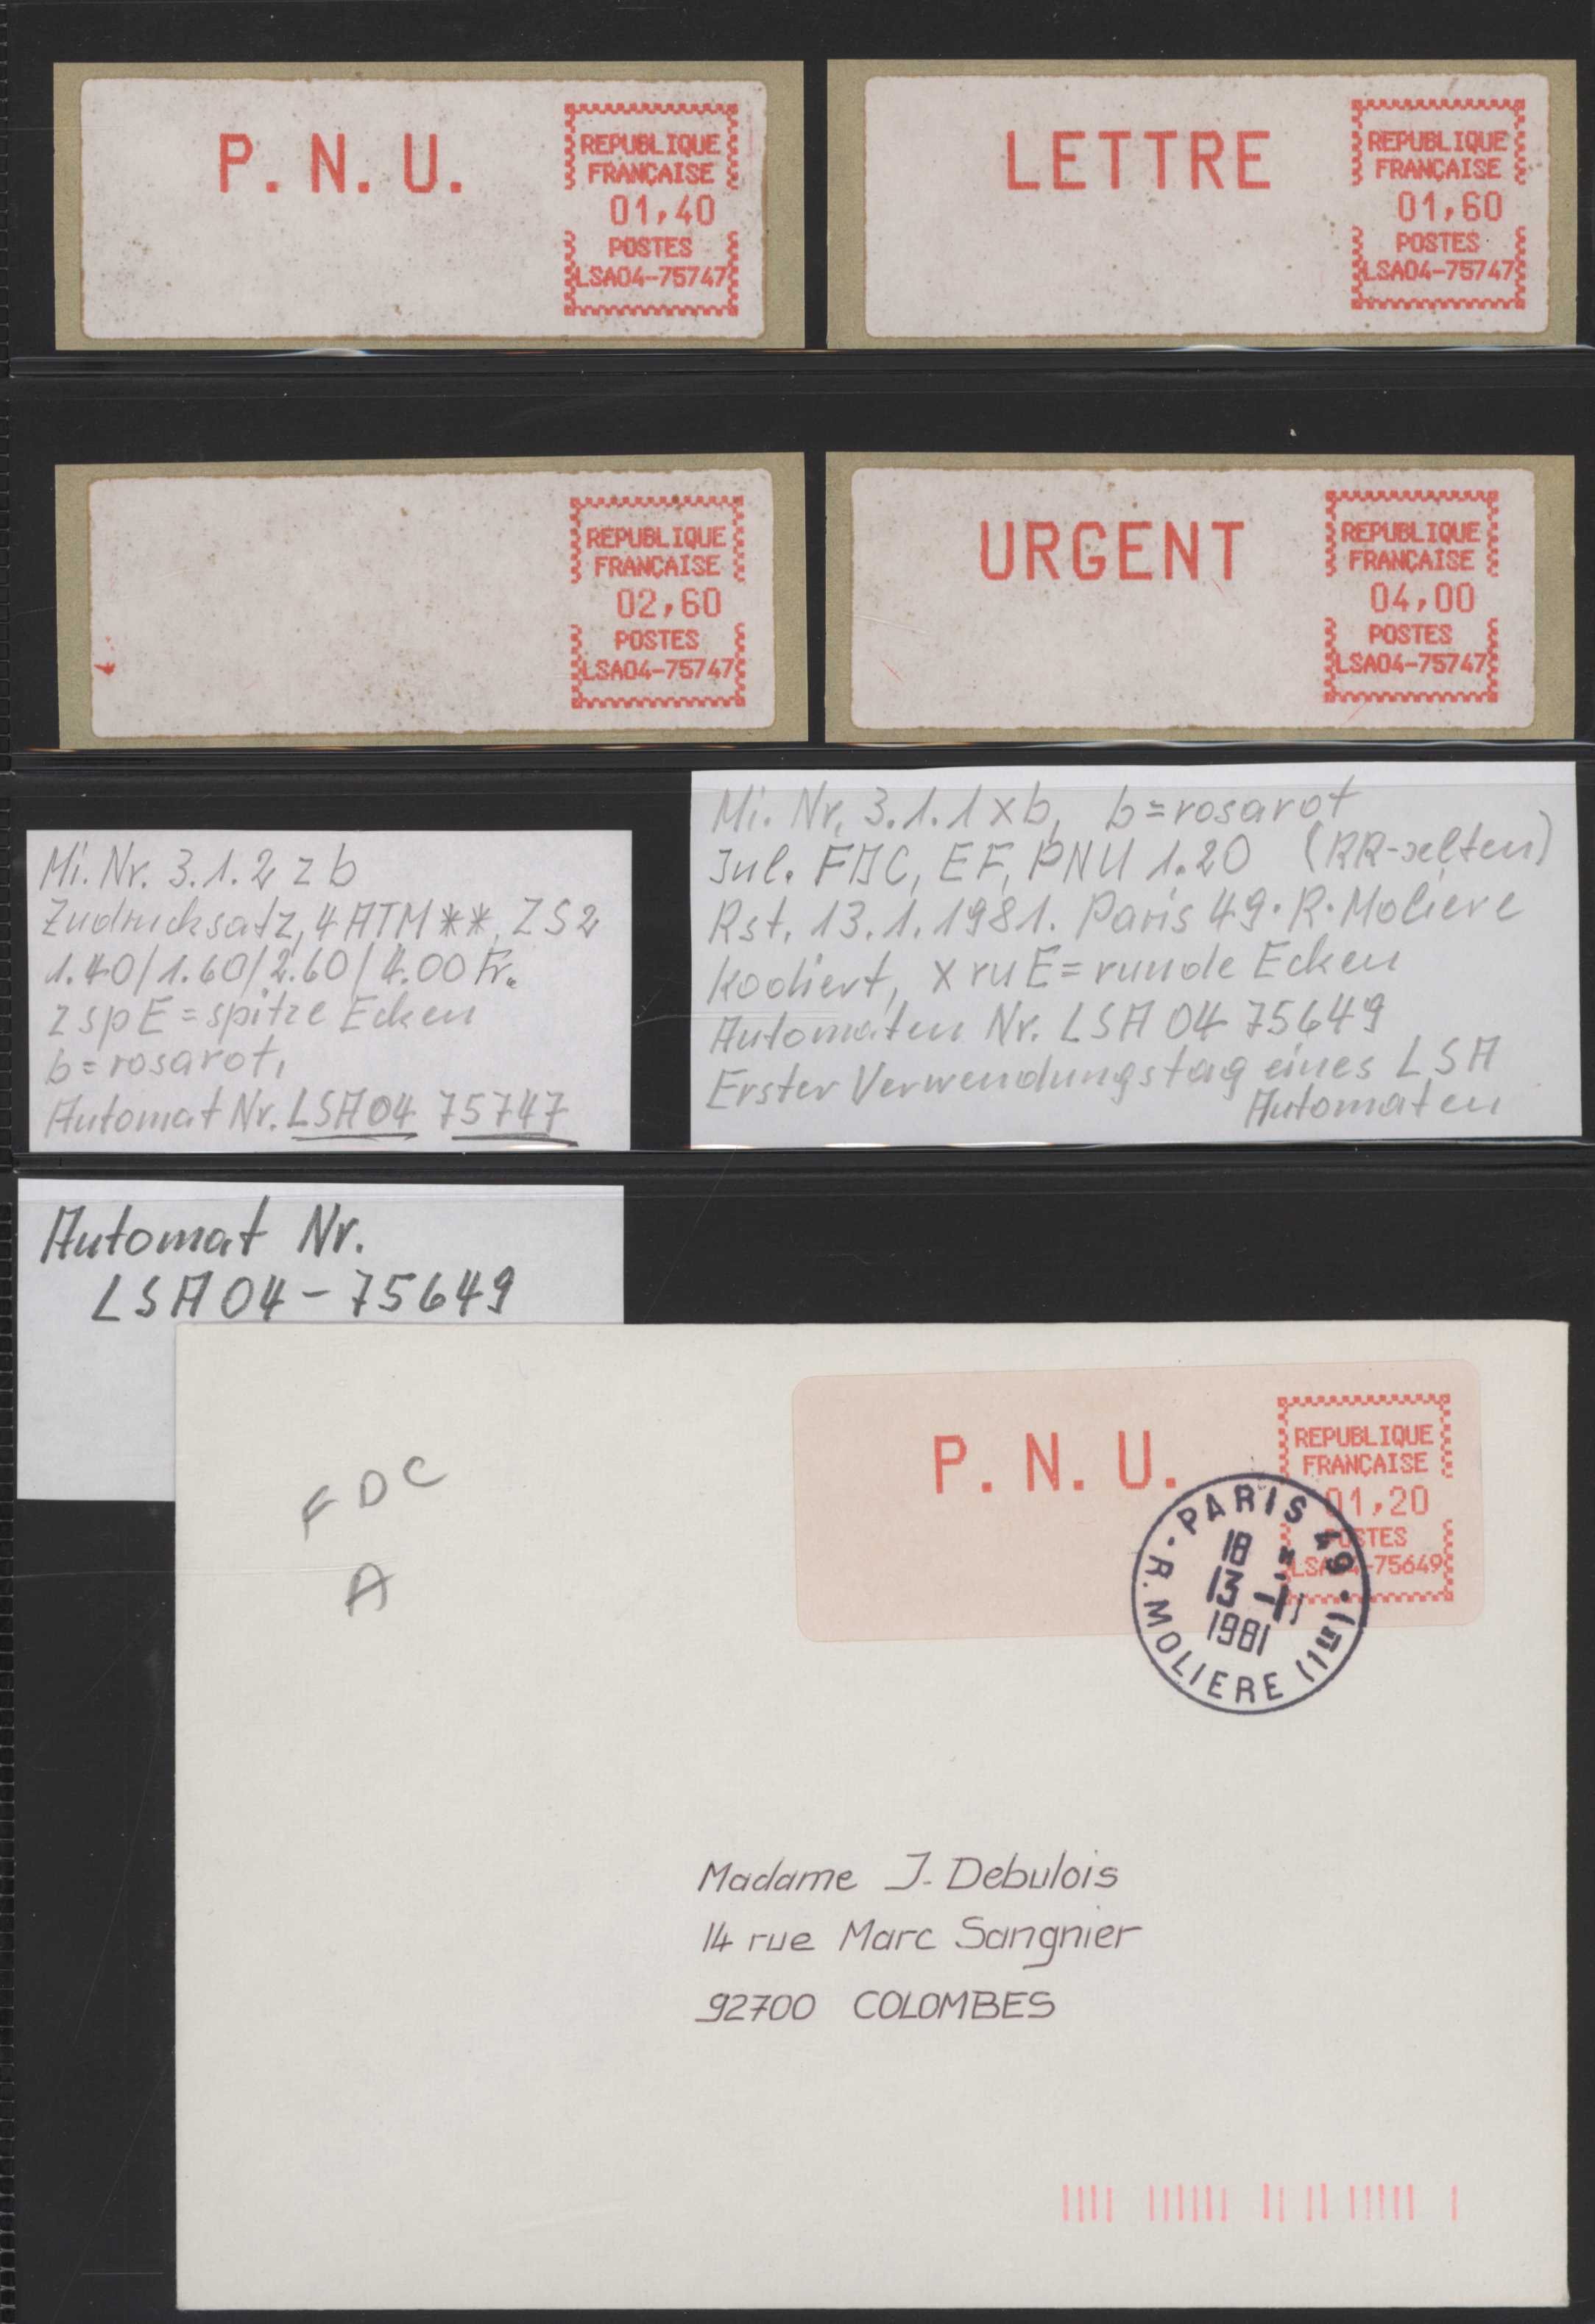 P. N. U.
REPUBLIQUE
FRANÇAISE
01,40
POSTES
LSA04-75747
LETTRE
REPUBLIQUE
FRANÇAISE
01,60
POSTES
LSA04-75747
REPUBLIQUE
FRANÇAISE
02,60
POSTES
LSA04-75747
URGENT
REPUBLIQUE
FRANÇAISE
04,00
POSTES
LSA04-75747
Mi. Nr. 3.1.2 z b
Zudrucksatz, 4 ATM **, ZS2
1.40/1.60/2.60/4.00 Fr.
z spE = spitze Ecken
b = rosarot,
Automat Nr. LSA04 75747
Mi. Nr. 3.1.1 x b, b = rosarot
Inl. FDC, EF, PNU 1.20 (RR-selten)
Rst. 13.1.1981. Paris 49·R·Moliere
Kodiert, x ruE = runde Ecken
Automaten Nr. LSA 04 75649
Erster Verwendungstag eines LSA
Automaten
Automat Nr.
LSA04-75649
FDC
A
P. N. U.
REPUBLIQUE
FRANÇAISE
01,20
POSTES
LSA04-75649
PARIS 49 · R. MOLIERE (1er)
18 H
13 -1
1981
Madame J. Debulois
14 rue Marc Sangnier
92700 COLOMBES